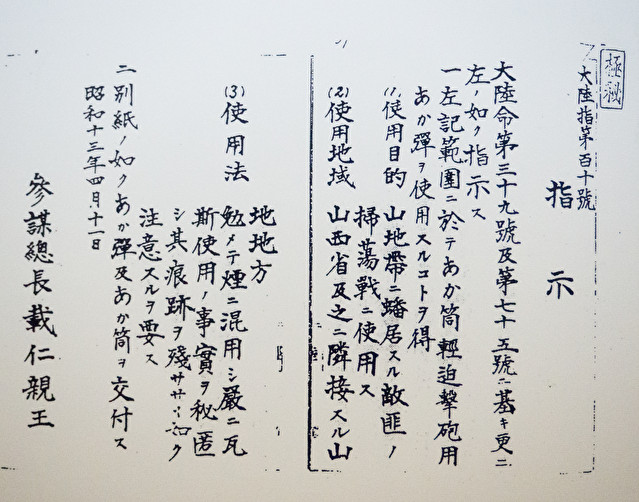 極秘
大陸指第百十號
指示
大陸命第三十九號及第七十五號ニ基キ更ニ
左ノ如ク指示ス
一左記範圍ニ於テあか筒輕迫撃砲用
あか彈ヲ使用スルコトヲ得
(1)使用目的 山地帶ニ蟠居スル敵匪ノ
掃蕩戰ニ使用ス
(2)使用地域 山西省及之ニ隣接スル山
地地方
(3)使用法 勉メテ煙ニ混用シ嚴ニ瓦
斯使用ノ事實ヲ秘匿
シ其痕跡ヲ殘サザル如ク
注意スルヲ要ス
二別紙ノ如クあか彈及あか筒ヲ交付ス
昭和十三年四月十一日
參謀總長載仁親王